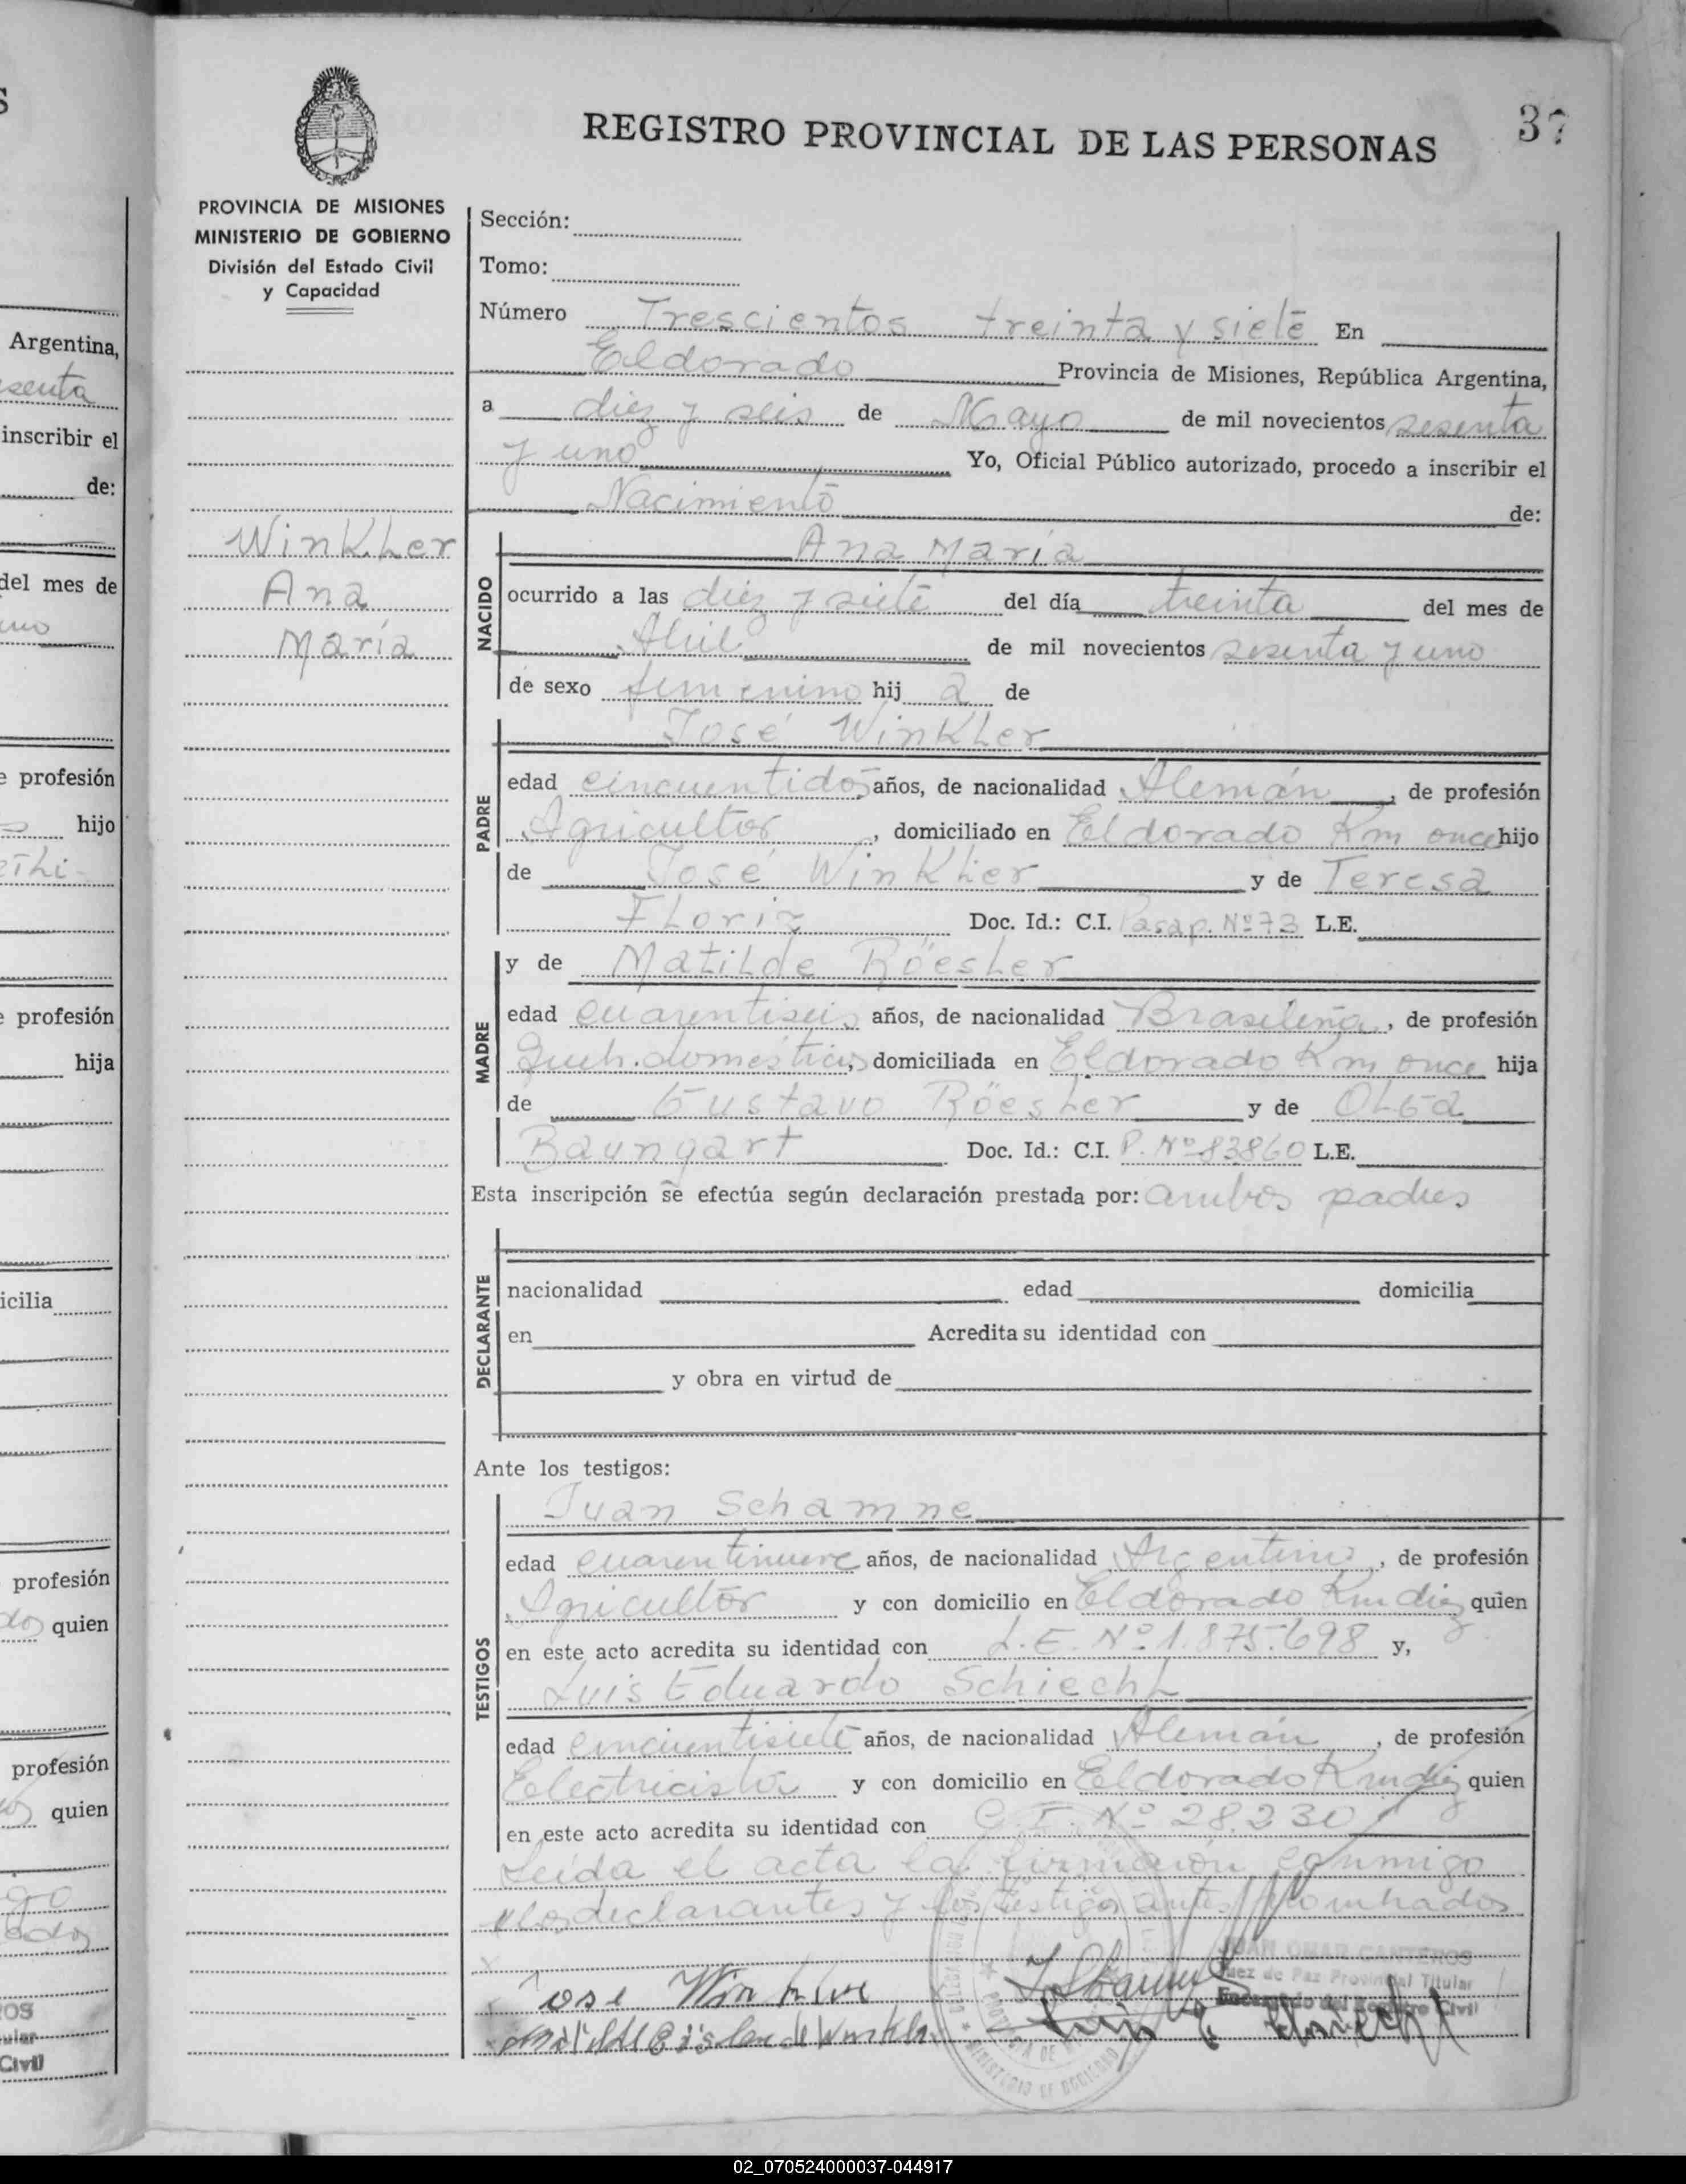 REGISTRO PROVINCIAL DE LAS PERSONAS
37
PROVINCIA DE MISIONES
MINISTERIO DE GOBIERNO
División del Estado Civil
y Capacidad
Winkler
Ana
María
Sección:
Tomo:
Número Trescientos treinta y siete En
Eldorado Provincia de Misiones, República Argentina,
a diez y seis de Mayo de mil novecientos sesenta
y uno Yo, Oficial Público autorizado, procedo a inscribir el
Nacimiento de:
NACIDO
Ana María
ocurrido a las diez y siete del día treinta del mes de
Abril de mil novecientos sesenta y uno
de sexo femenino hij a de
PADRE
José Winkler
edad cincuentidos años, de nacionalidad Alemán, de profesión
Agricultor, domiciliado en Eldorado Km once hijo
de José Winkler y de Teresa
Floriz Doc. Id.: C.I. Pasap. Nº 73 L.E.
MADRE
y de Matilde Röesler
edad cuarentiseis años, de nacionalidad Brasileña, de profesión
Queh. domésticos, domiciliada en Eldorado Km once hija
de Gustavo Röesler y de Olga
Baungart Doc. Id.: C.I. P. Nº 83860 L.E.
Esta inscripción se efectúa según declaración prestada por: ambos padres
DECLARANTE
nacionalidad edad domicilia
en Acredita su identidad con
y obra en virtud de
Ante los testigos:
TESTIGOS
Juan Schamne
edad cuarentinueve años, de nacionalidad Argentino, de profesión
Agricultor y con domicilio en Eldorado Km diez quien
en este acto acredita su identidad con L.E. Nº 1.875.698 y,
Luis Eduardo Schiecht
edad cincuentisiete años, de nacionalidad Alemán, de profesión
Electricista y con domicilio en Eldorado Km diez quien
en este acto acredita su identidad con C.I. Nº 28.230
Leída el acta la firmaron conmigo
los declarantes y los testigos antes nombrados
JUAN OMAR CANTEROS
Juez de Paz Provincial Titular
Encargado del Registro Civil
Jose Winkler
Argentina,
senta
inscribir el
de:
del mes de
uno
profesión
hijo
profesión
hija
icilia
profesión
quien
profesión
quien
02_070524000037-044917